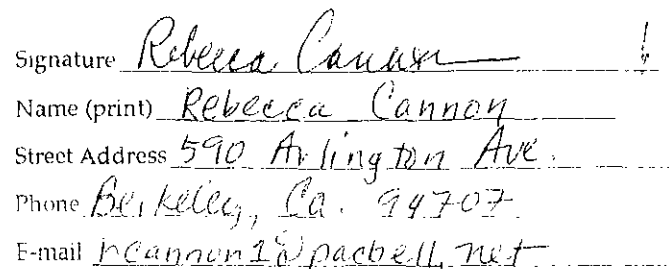 Signature Rebecca Cannon
Name (print) Rebecca Cannon
Street Address 590 Arlington Ave.
Phone Berkeley, Ca. 94707
E-mail rcannon1@pacbell.net